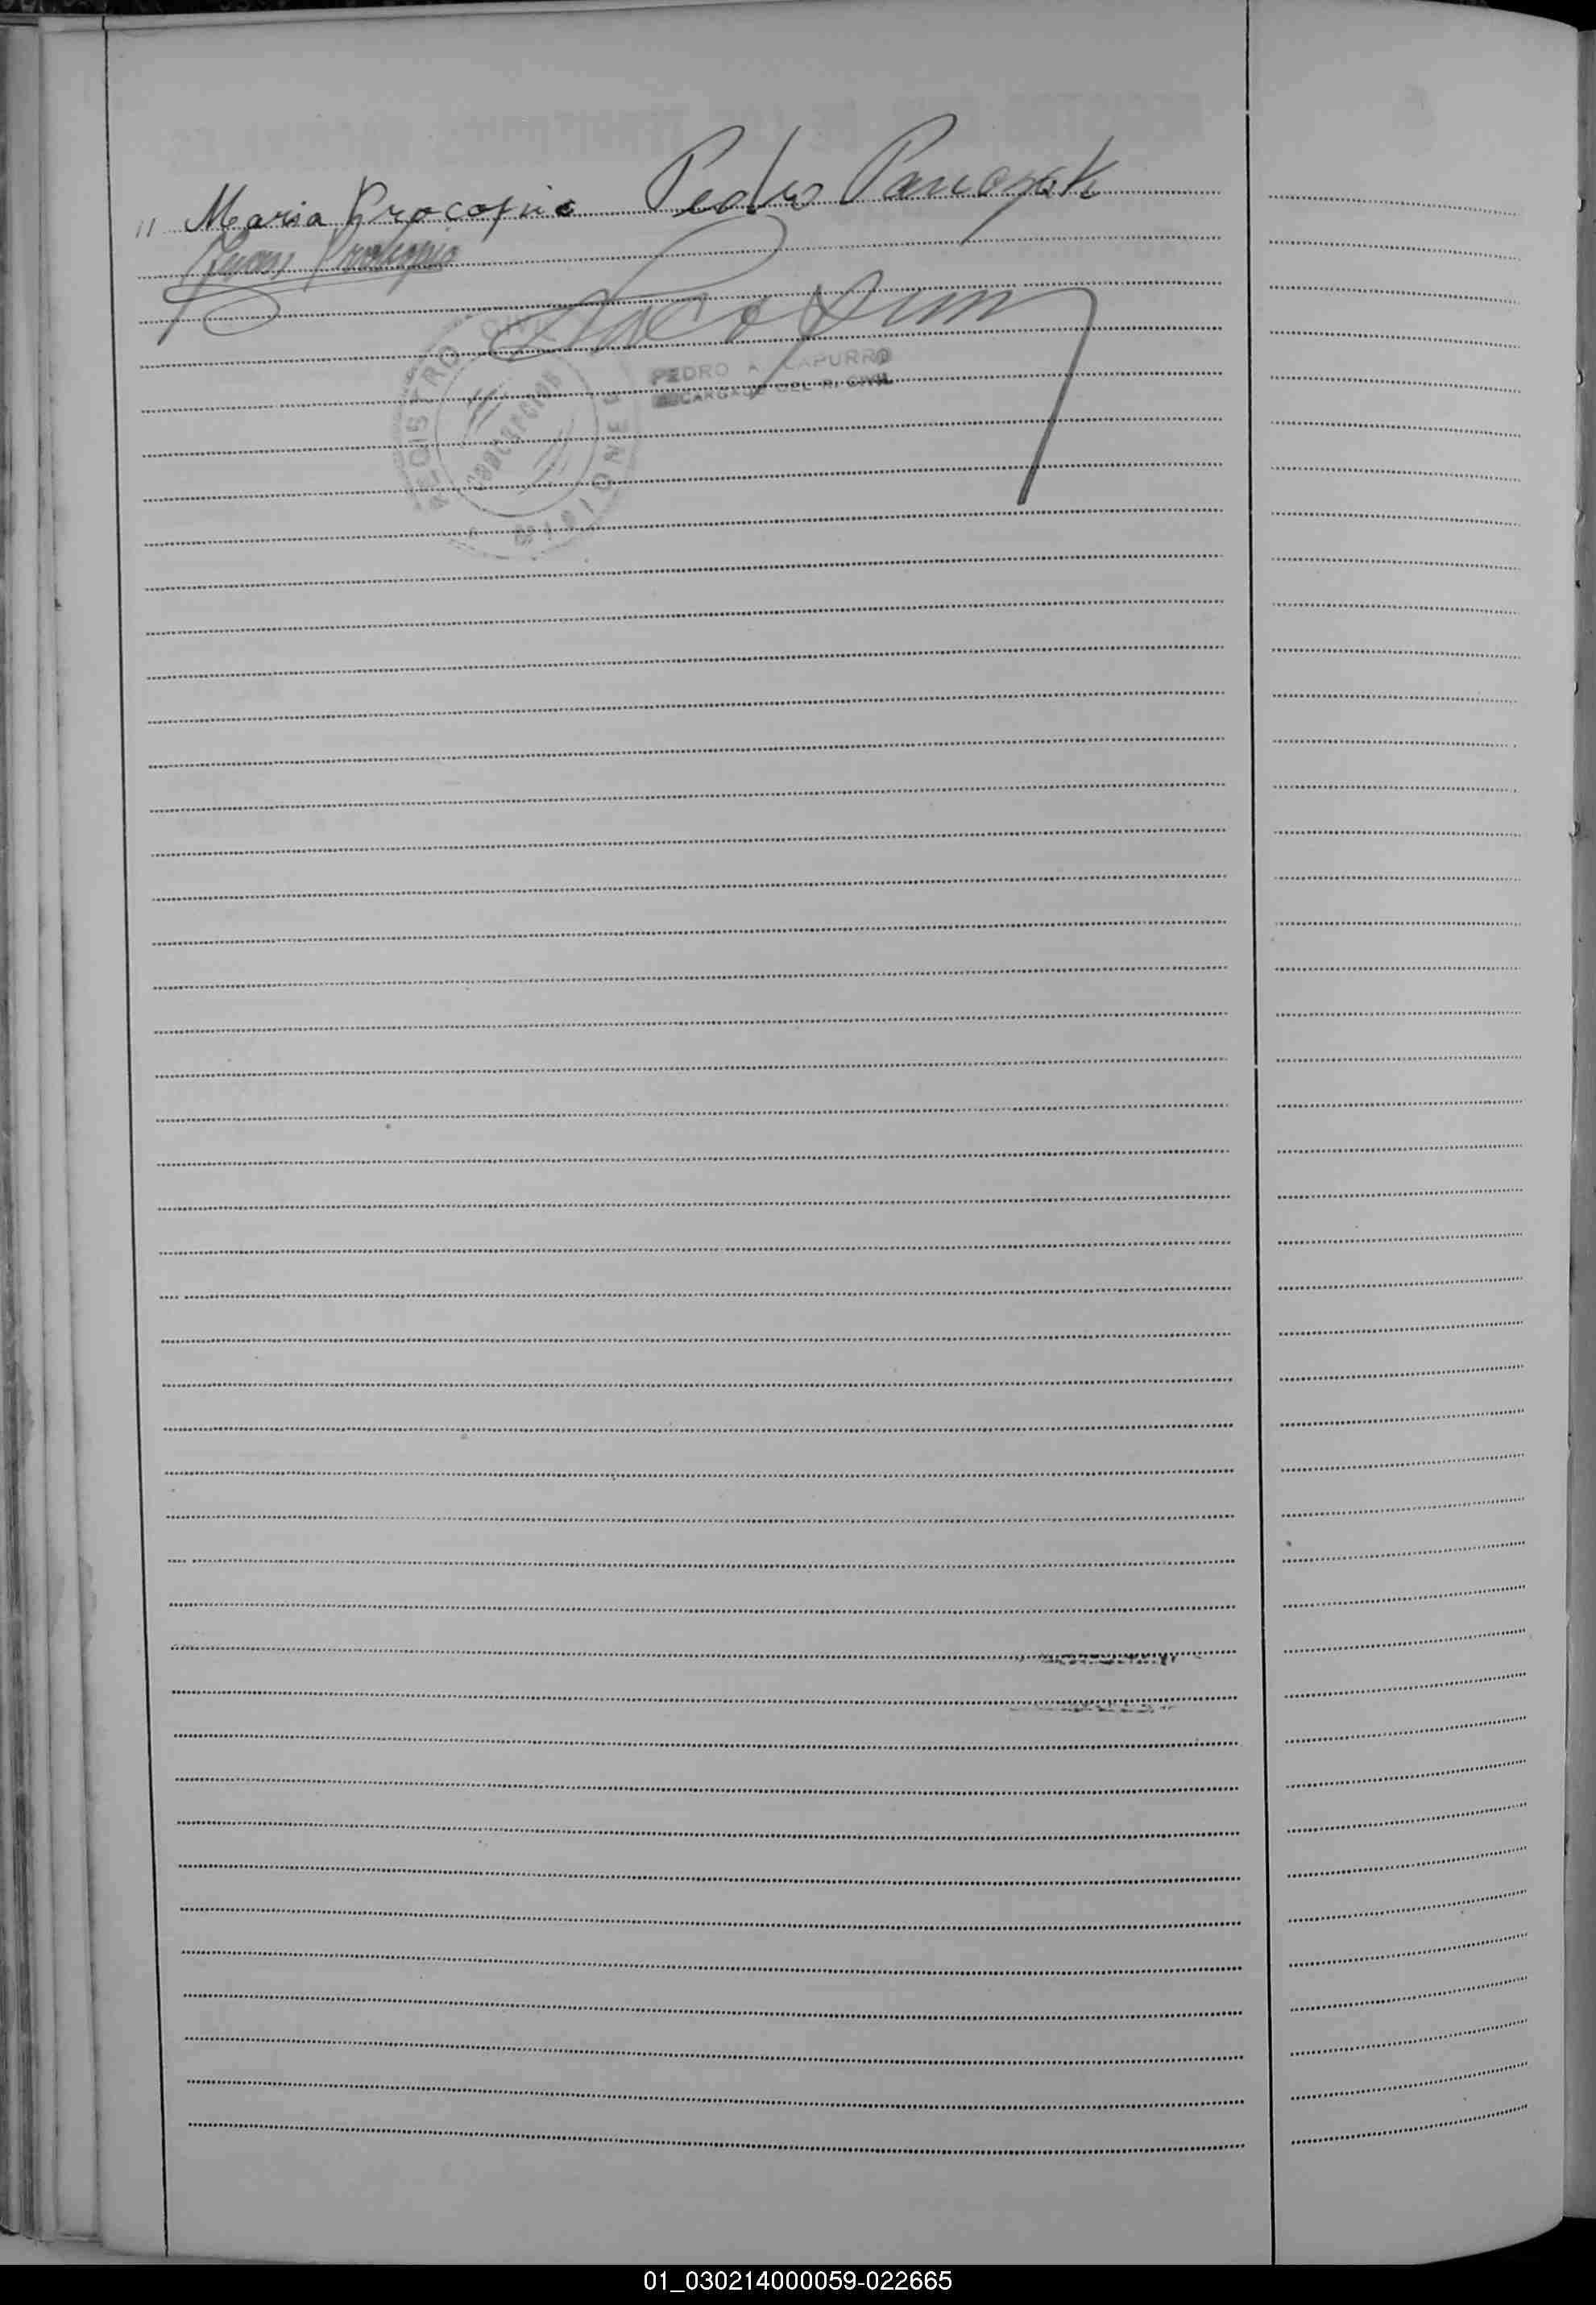 " Maria Procopio Pedro Panczak
Juan Prokopio
REGISTRO CIVIL
MISIONES
PEDRO A. CAPURRO
ENCARGADO DEL R. CIVIL
01_030214000059-022665